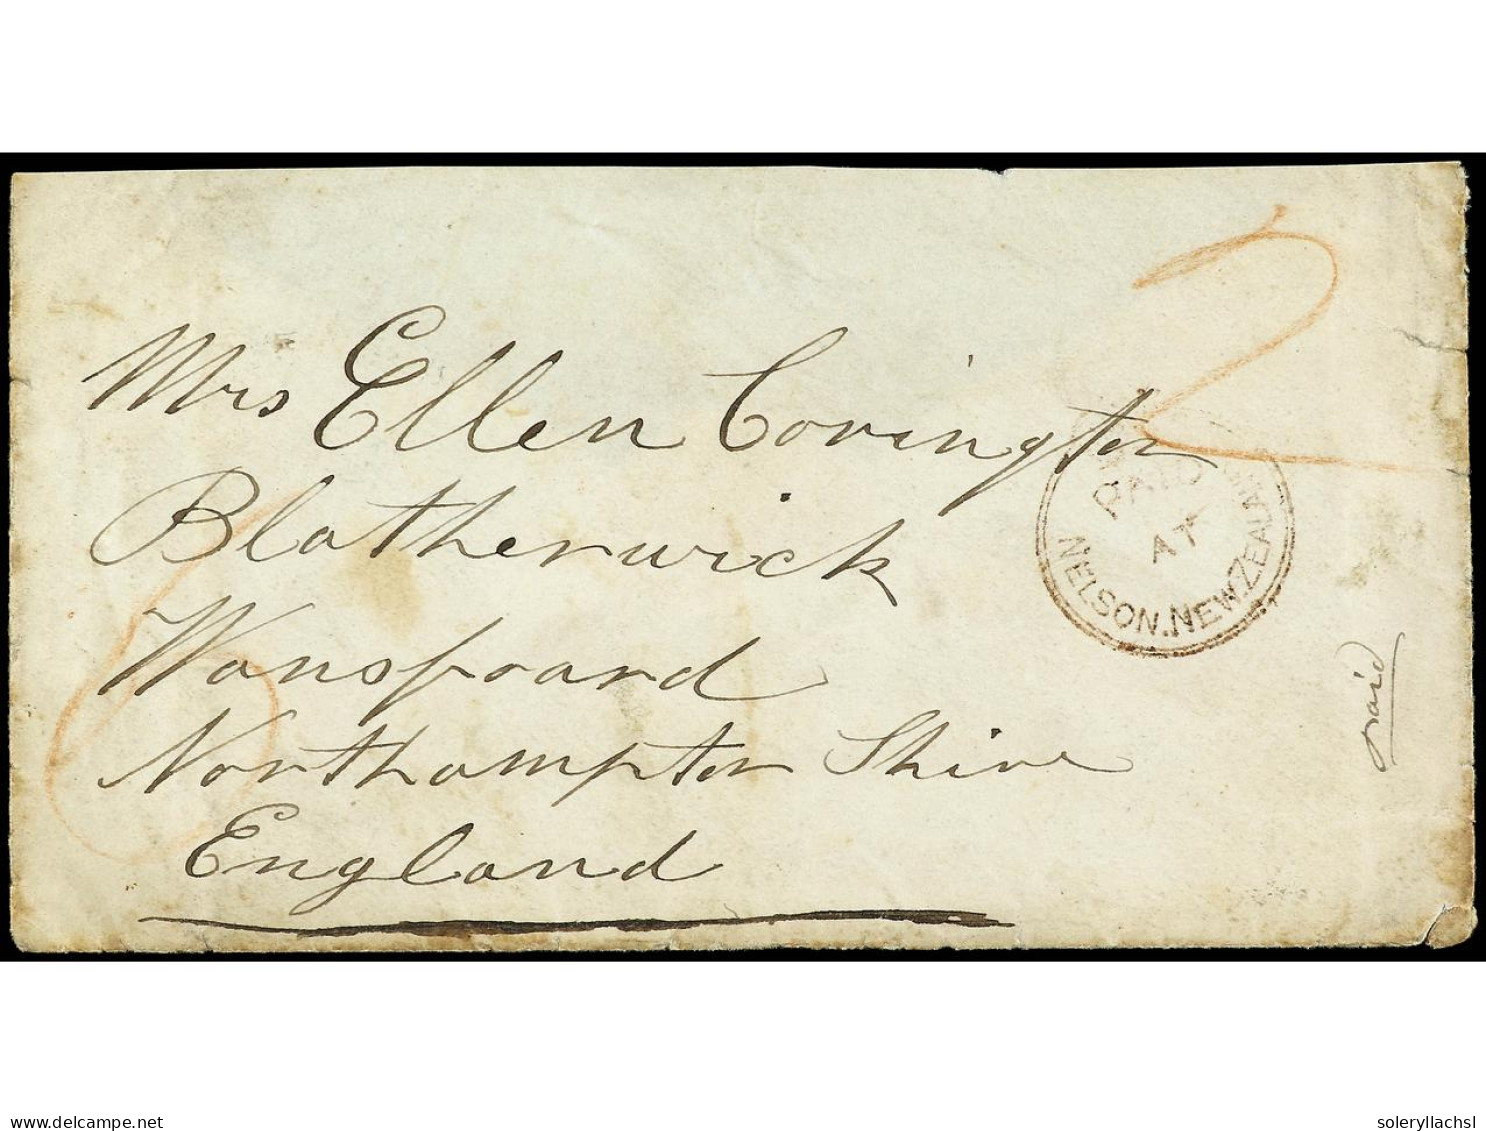 Mrs Ellen Covington
Blatherwick
Wansfoard
Northampton Shire
England
PAID
AT
NELSON. NEW ZEALAND
paid
2
6
delcampe.net
soleryllachsl